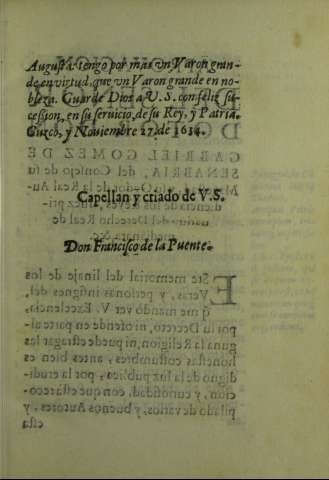 Augusta: tengo por mas vn Varon gran-
de en virtud, que vn Varon grande en no-
bleza. Guarde Dios a V. S. con feliz su-
cession, en su seruicio, de su Rey, y Patria.
Cuzco, y Nouiembre 27. de 1634.
Capellan y criado de V. S.
Don Francisco de la Puente.
GABRIEL GOMEZ DE
SENABRIA, del Consejo de su
Ste memorial del linaje de los
Veras, y personas insignes del,
q̃ me mandò ver V. Excelencia,
por su Decreto, ni ofende en parte al-
guna la Religion, ni puede estragar las
honestas costumbres, antes bien es
digno de la luz publica, por la erudi-
cion, y curiosidad, con que està reco-
pilado de varios, y buenos Autores, y
esta